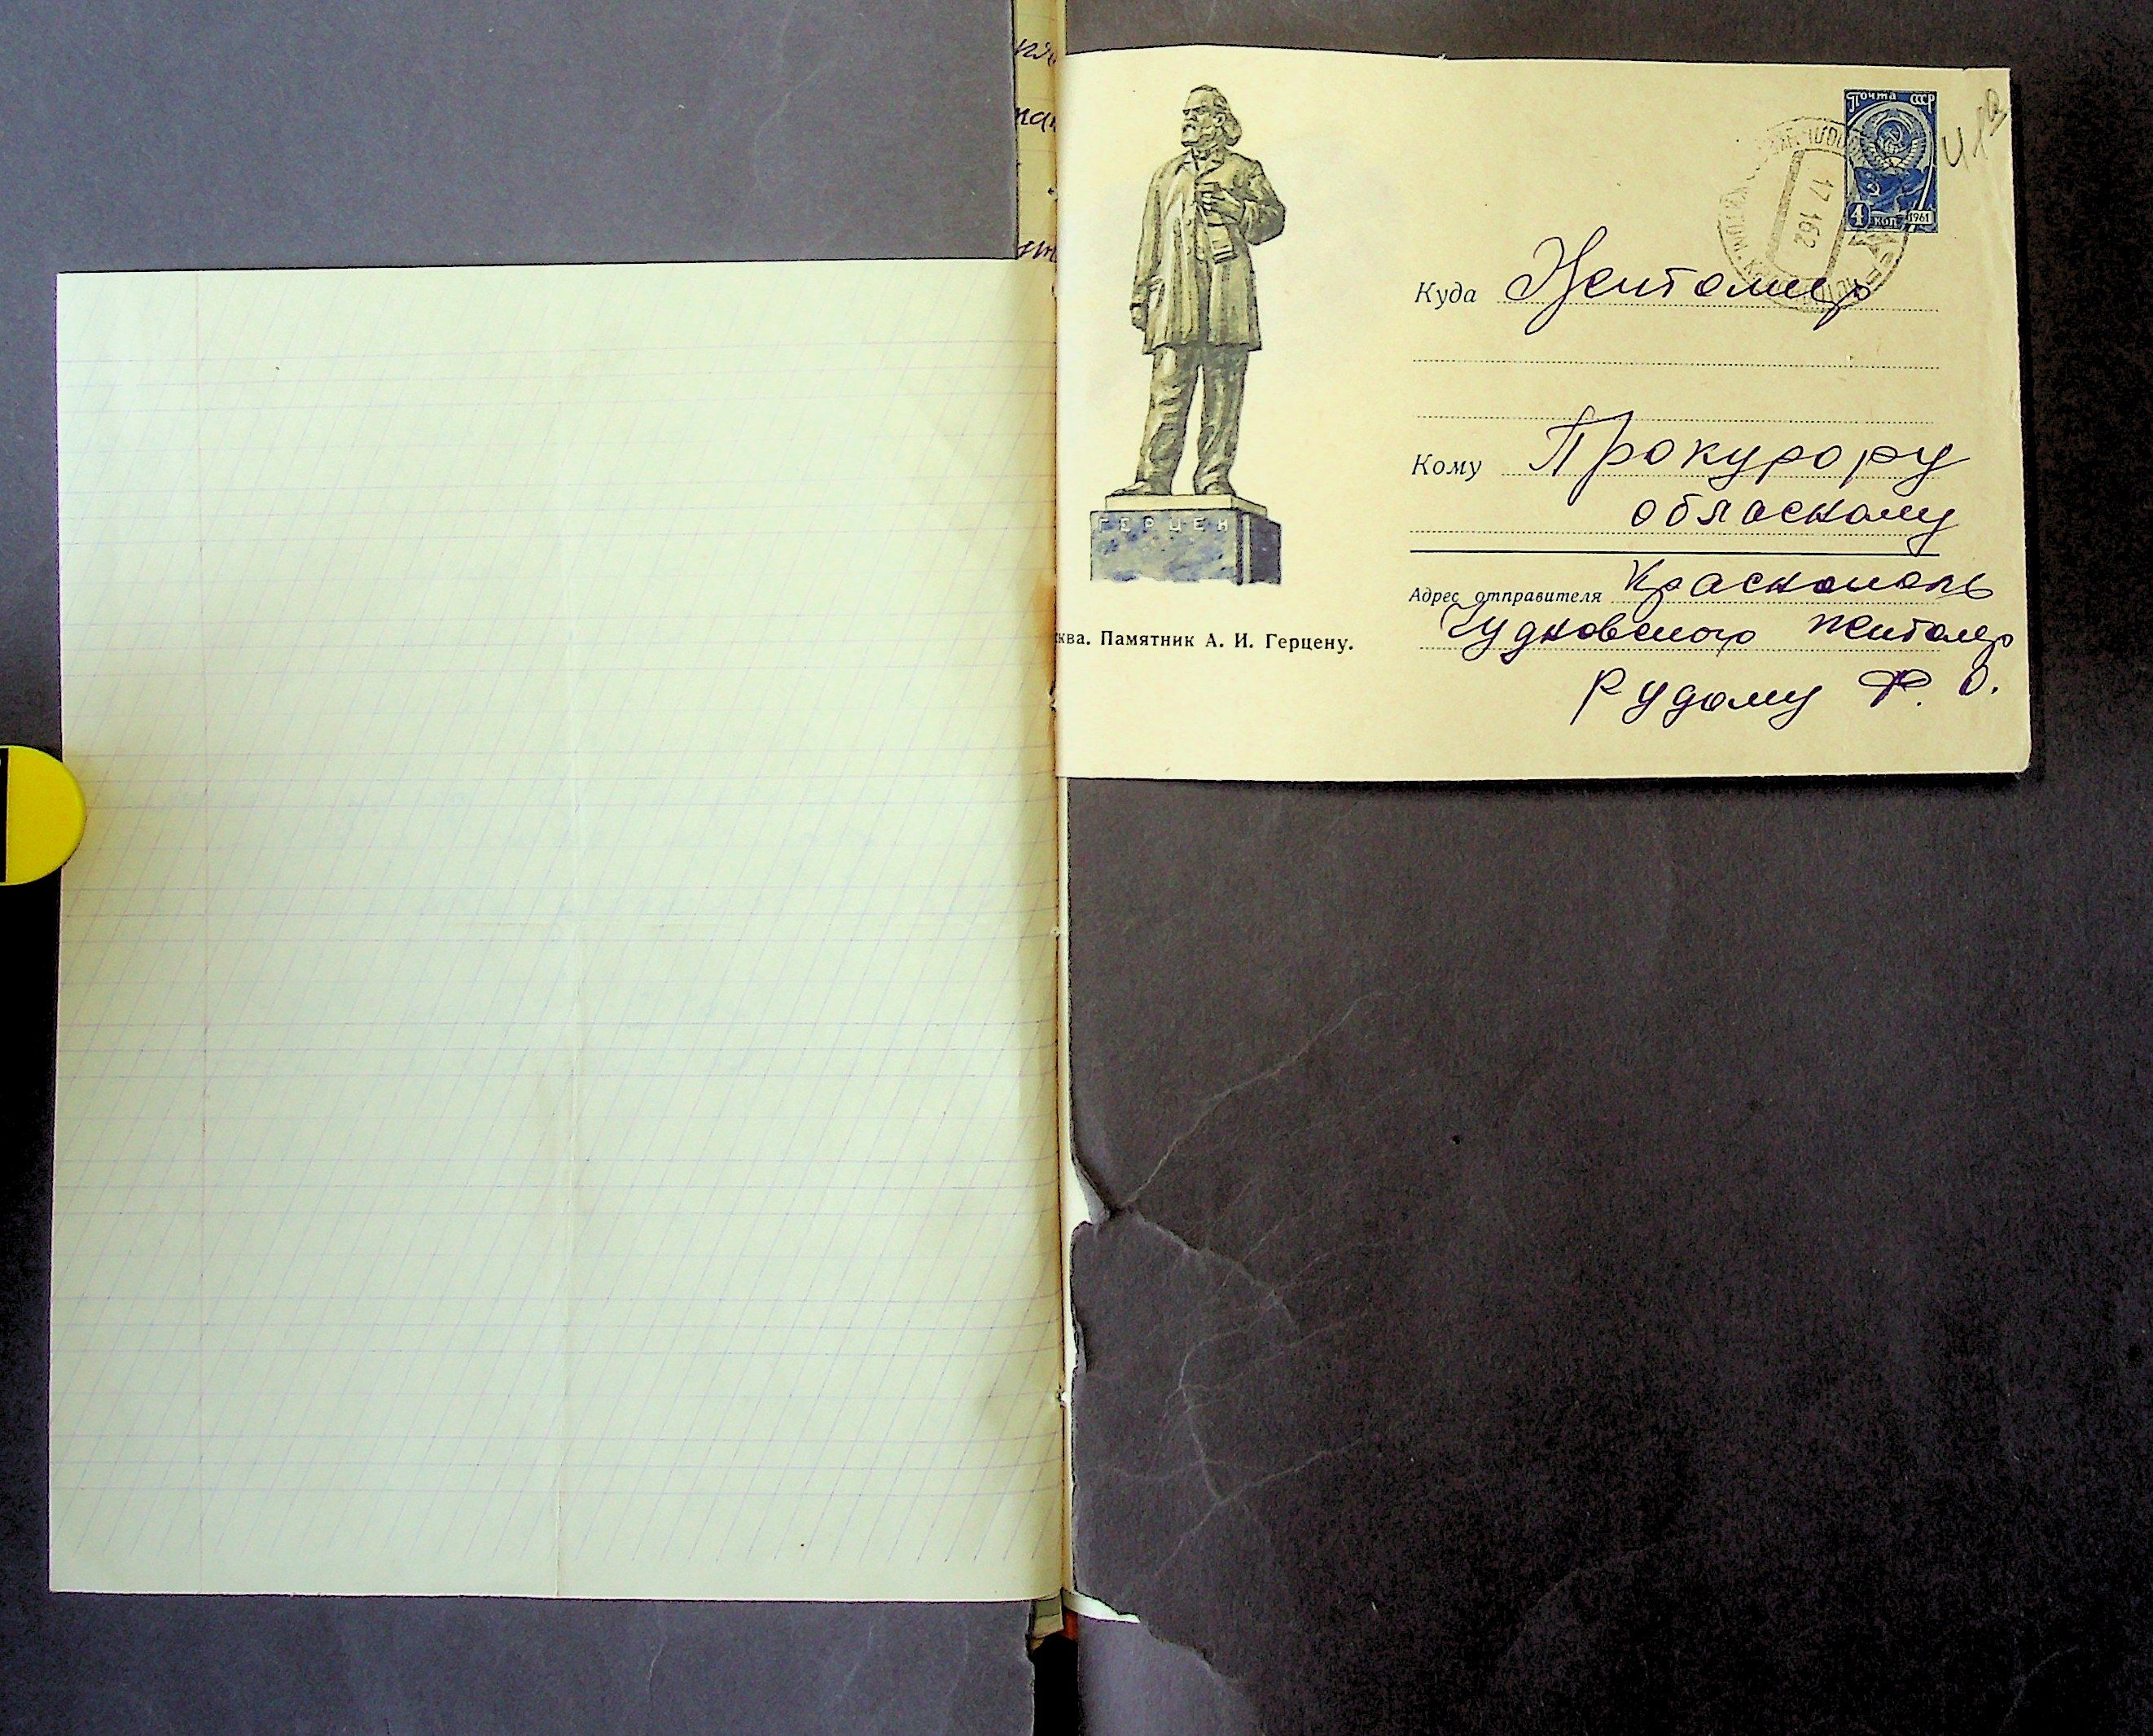 Почта СССР
4 коп 1961
17 1 62
Куда Житомир
Кому Прокурору
обласкому
Адрес отправителя Краснопіль
Чудновского Житомир
Рудому Ф. О.
ГЕРЦЕН
ква. Памятник А. И. Герцену.